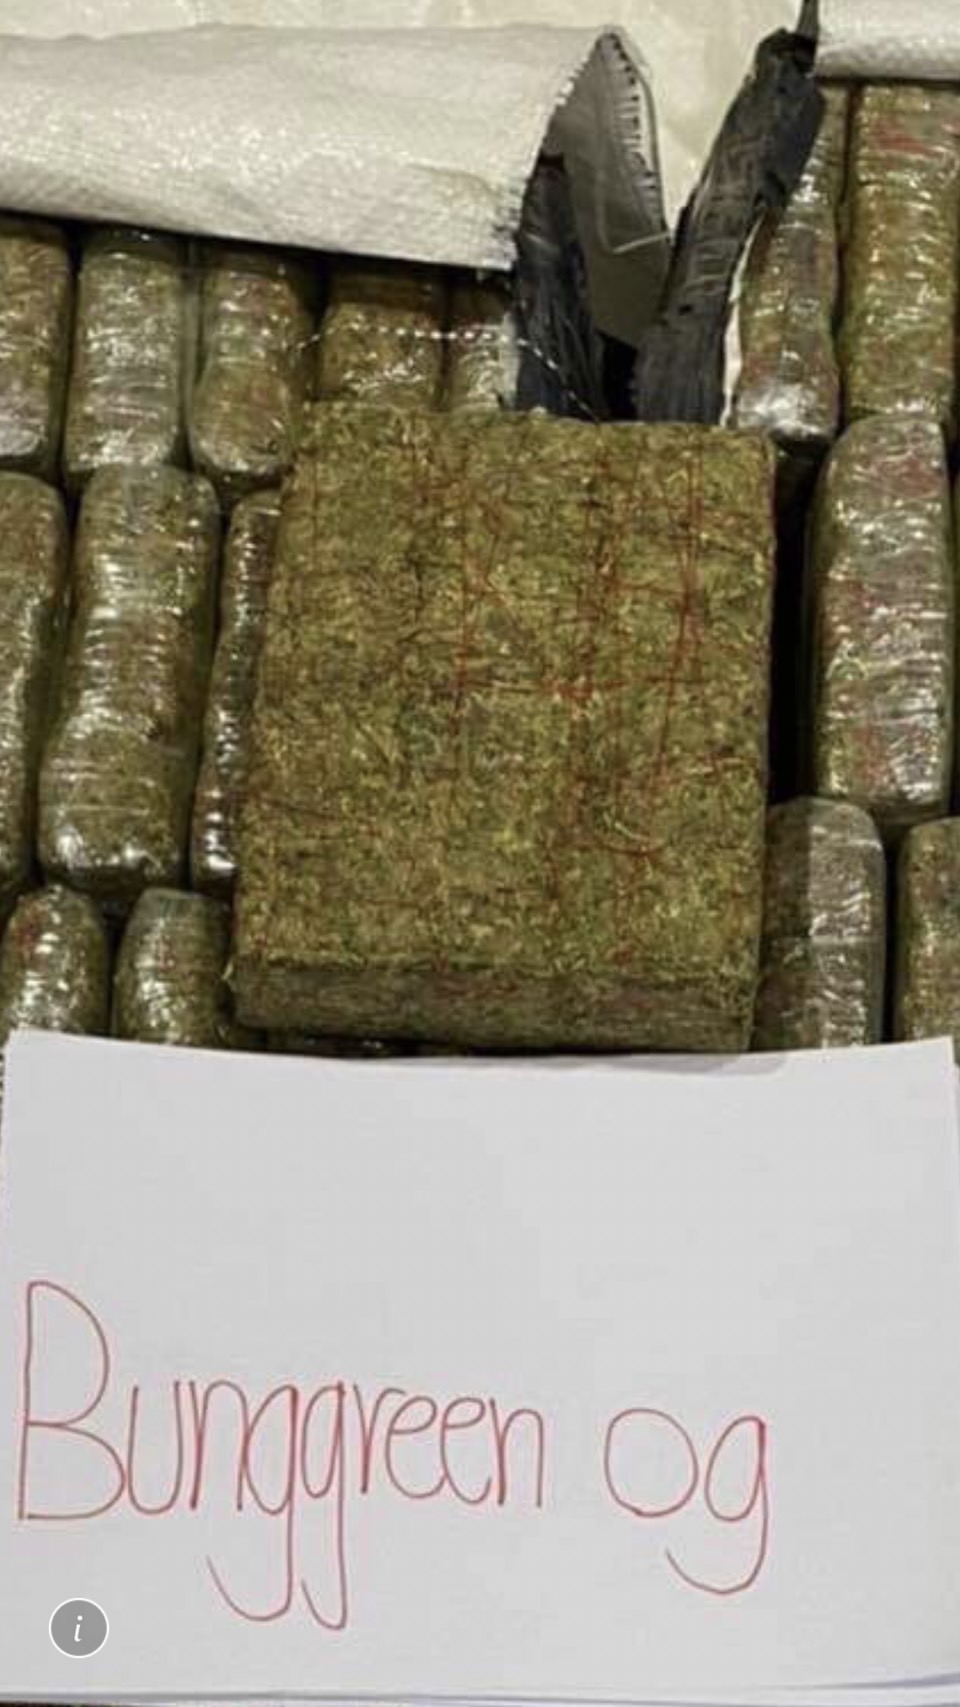 Bunggreen og